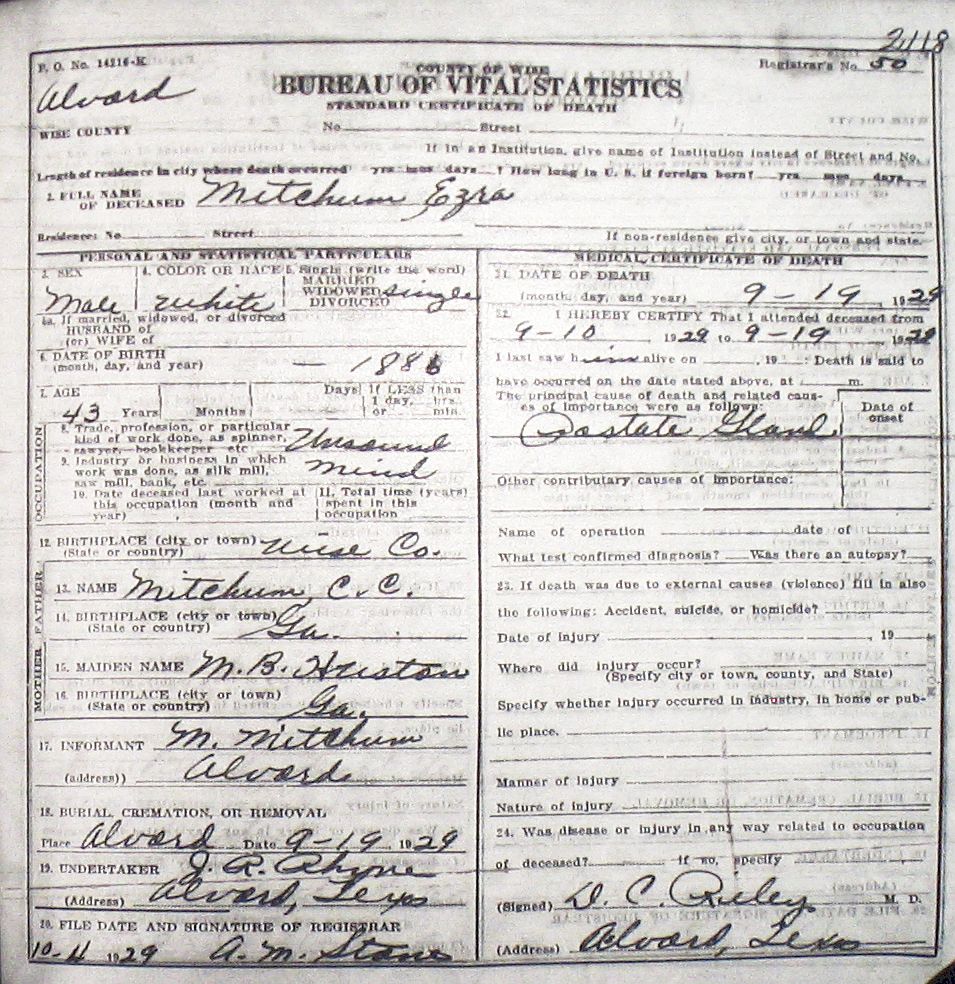 2118
P. O. No. 14216-K
COUNTY OF WISE
Registrar's No. 50
Alvord
BUREAU OF VITAL STATISTICS
STANDARD CERTIFICATE OF DEATH
WISE COUNTY
No Street
If in an Institution, give name of Institution instead of Street and No.
Length of residence in city where death occurred yrs mos days ? How long in U. S. if foreign born? yrs mos days
2. FULL NAME OF DECEASED Mitchum Ezra
Residence: No Street
If non-residence give city, or town and state.
PERSONAL AND STATISTICAL PARTICULARS
3. SEX Male
4. COLOR OR RACE White
5. Single (write the word) MARRIED WIDOWED DIVORCED single
6a. If married, widowed, or divorced
HUSBAND of
(or) WIFE of
6. DATE OF BIRTH
(month, day, and year) — 1886
7. AGE Days If LESS than
1 day, hrs.
43 Years Months or min.
OCCUPATION
8. Trade, profession, or particular
kind of work done, as spinner, Unsound
sawyer, bookkeeper etc
9. Industry or business in which mind
work was done, as silk mill,
saw mill, bank, etc.
10. Date deceased last worked at
this occupation (month and
year)
11. Total time (years)
spent in this
occupation
12. BIRTHPLACE (city or town) Wise Co.
(State or country)
FATHER
13. NAME Mitchum, C. C.
14. BIRTHPLACE (city or town)
(State or country) Ga.
MOTHER
15. MAIDEN NAME M. B. Huston
16. BIRTHPLACE (city or town)
(State or country) Ga.
17. INFORMANT M. Mitchum
(address)) Alvord
18. BURIAL, CREMATION, OR REMOVAL
Place Alvord Date 9-19 1929
19. UNDERTAKER J. A. Rhyne
(Address) Alvord, Texas
20. FILE DATE AND SIGNATURE OF REGISTRAR
10-4 1929 A. M. Stone
MEDICAL CERTIFICATE OF DEATH
21. DATE OF DEATH
(month, day, and year) 9-19, 1929
22. I HEREBY CERTIFY That I attended deceased from
9-10 1929 to 9-19, 1929
I last saw him alive on , 19 : Death is said to
have occurred on the date stated above, at m.
The principal cause of death and related caus-
es of importance were as follows:
Date of
onset
Prostate Gland.
Other contributary causes of importance:
Name of operation date of
What test confirmed diagnosis? Was there an autopsy?
23. If death was due to external causes (violence) fill in also
the following: Accident, suicide, or homicide?
Date of injury , 19
Where did injury occur?
(Specify city or town, county, and State)
Specify whether injury occurred in industry, in home or pub-
lic place.
Manner of injury
Nature of injury
24. Was disease or injury in any way related to occupation
of deceased? if so, specify
(Signed) D. C. Riley. M. D.
(Address) Alvord, Texas